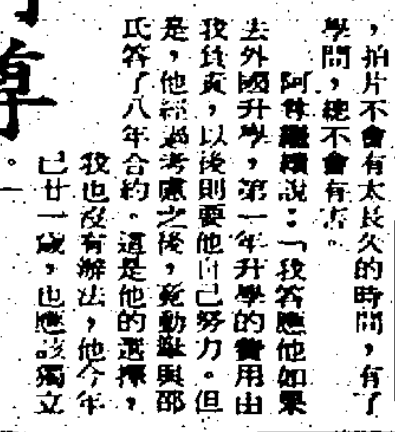 ，拍片不會有太長久的時間，有了
學問，總不會有害。
阿繼續說：「我答應他如果
去外國升學，第一年升學的費用由
我負責，以後則要他自己努力。但
是，他經過考慮之後，竟動與邵
氏答了八年合約。這是他的選擇，
我也沒有辦法，他今年
已廿一歲，也應該獨立
。一